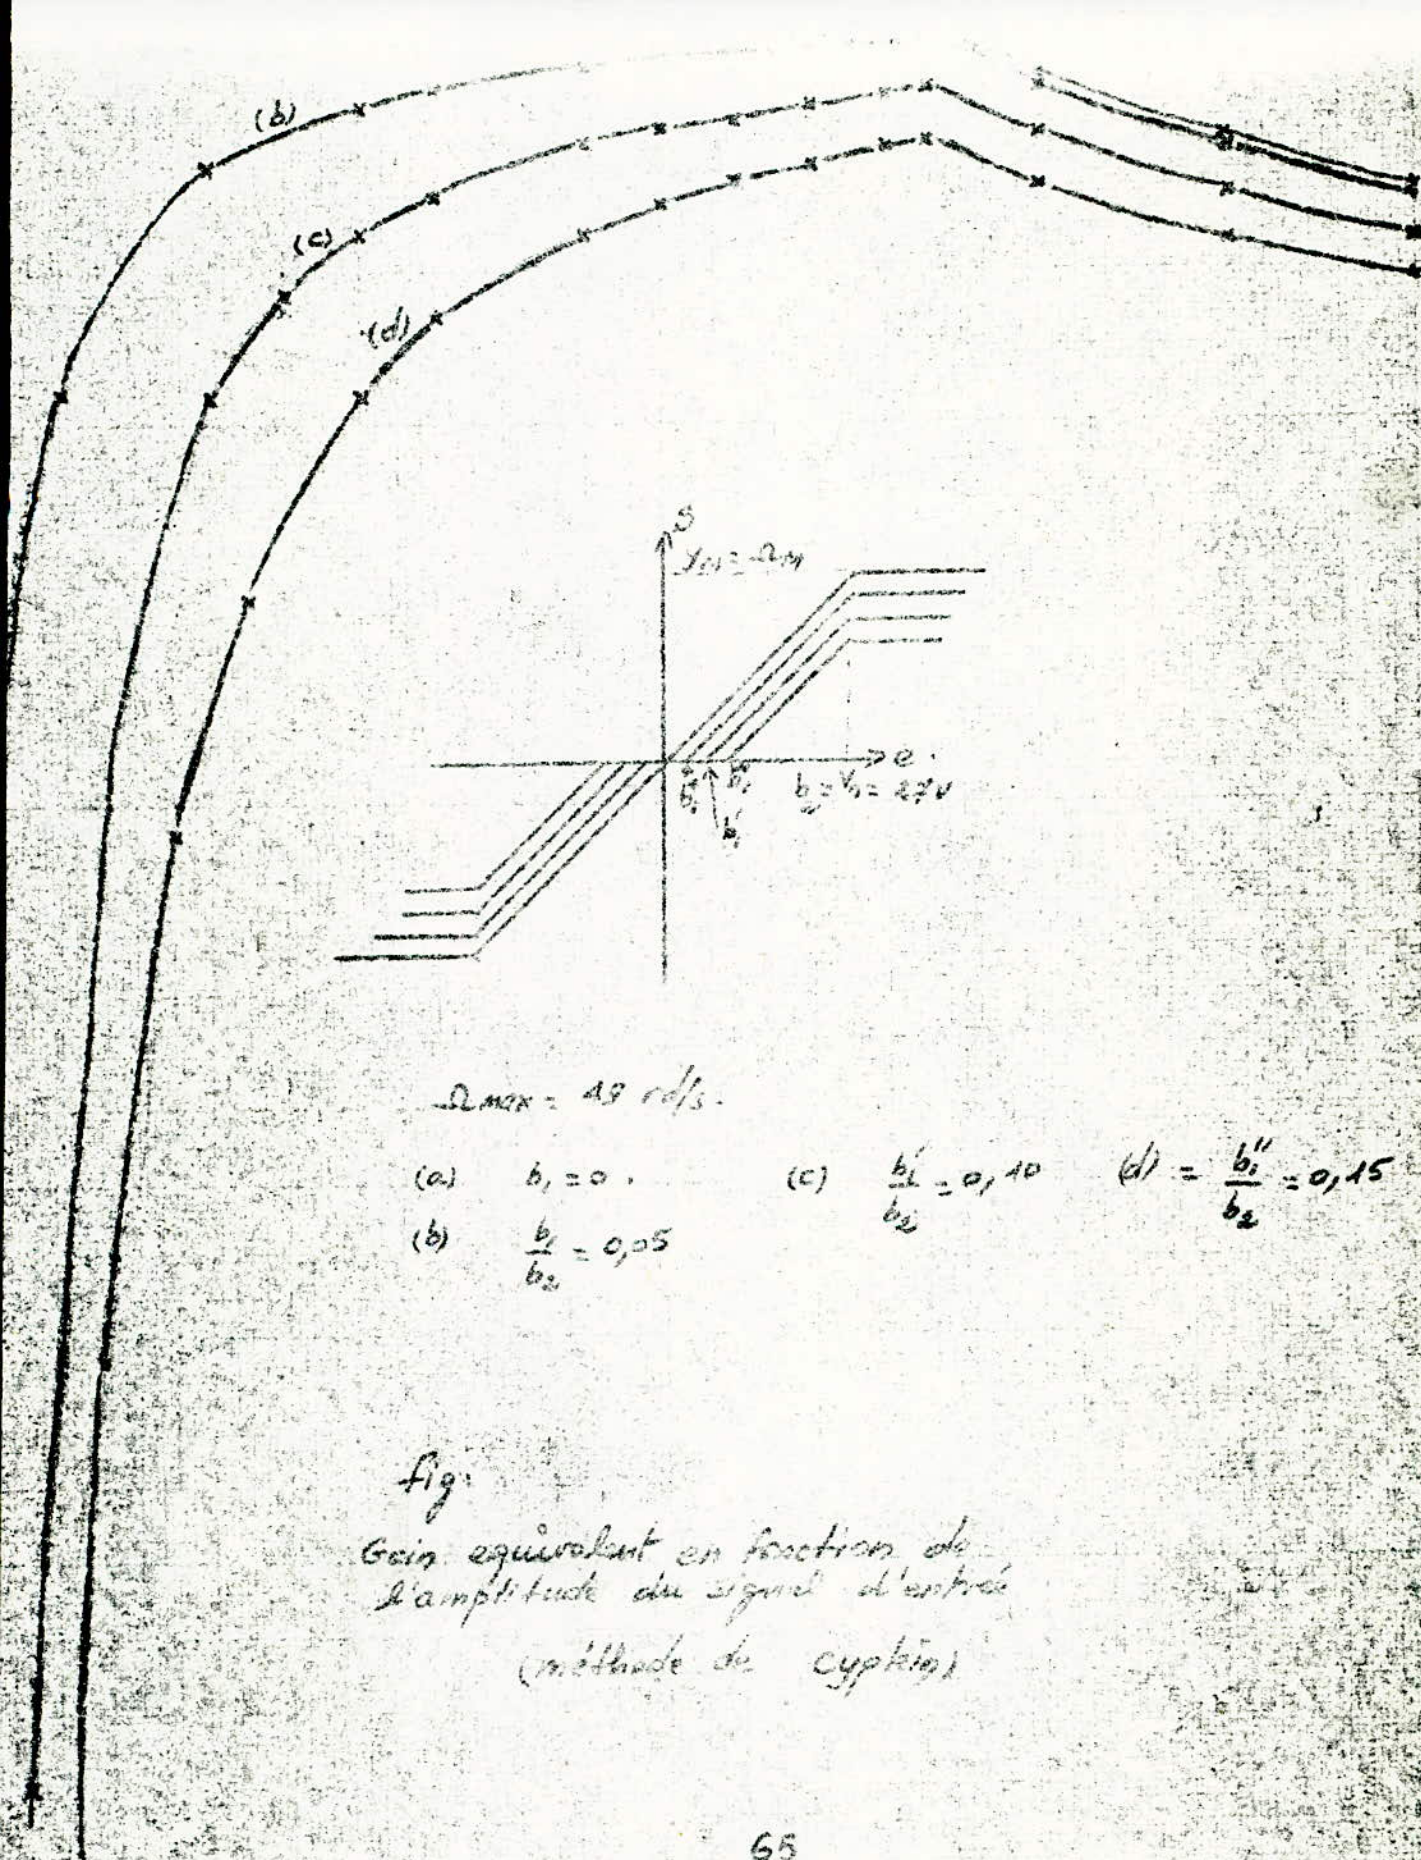 (b)
(c)
(d)
S
y_M = Ω_M
e
b₁ b₁" b₂ = V_M = 27V
b₁'
Ω max = 49 rd/s.
(a) b₁ = 0 . (c) b₁'/b₂ = 0,10 (d) = b₁"/b₂ = 0,15
(b) b₁/b₂ = 0,05
fig:
Gain equivalent en fonction de
l'amplitude du signal d'entrée
(méthode de cypkin)
65